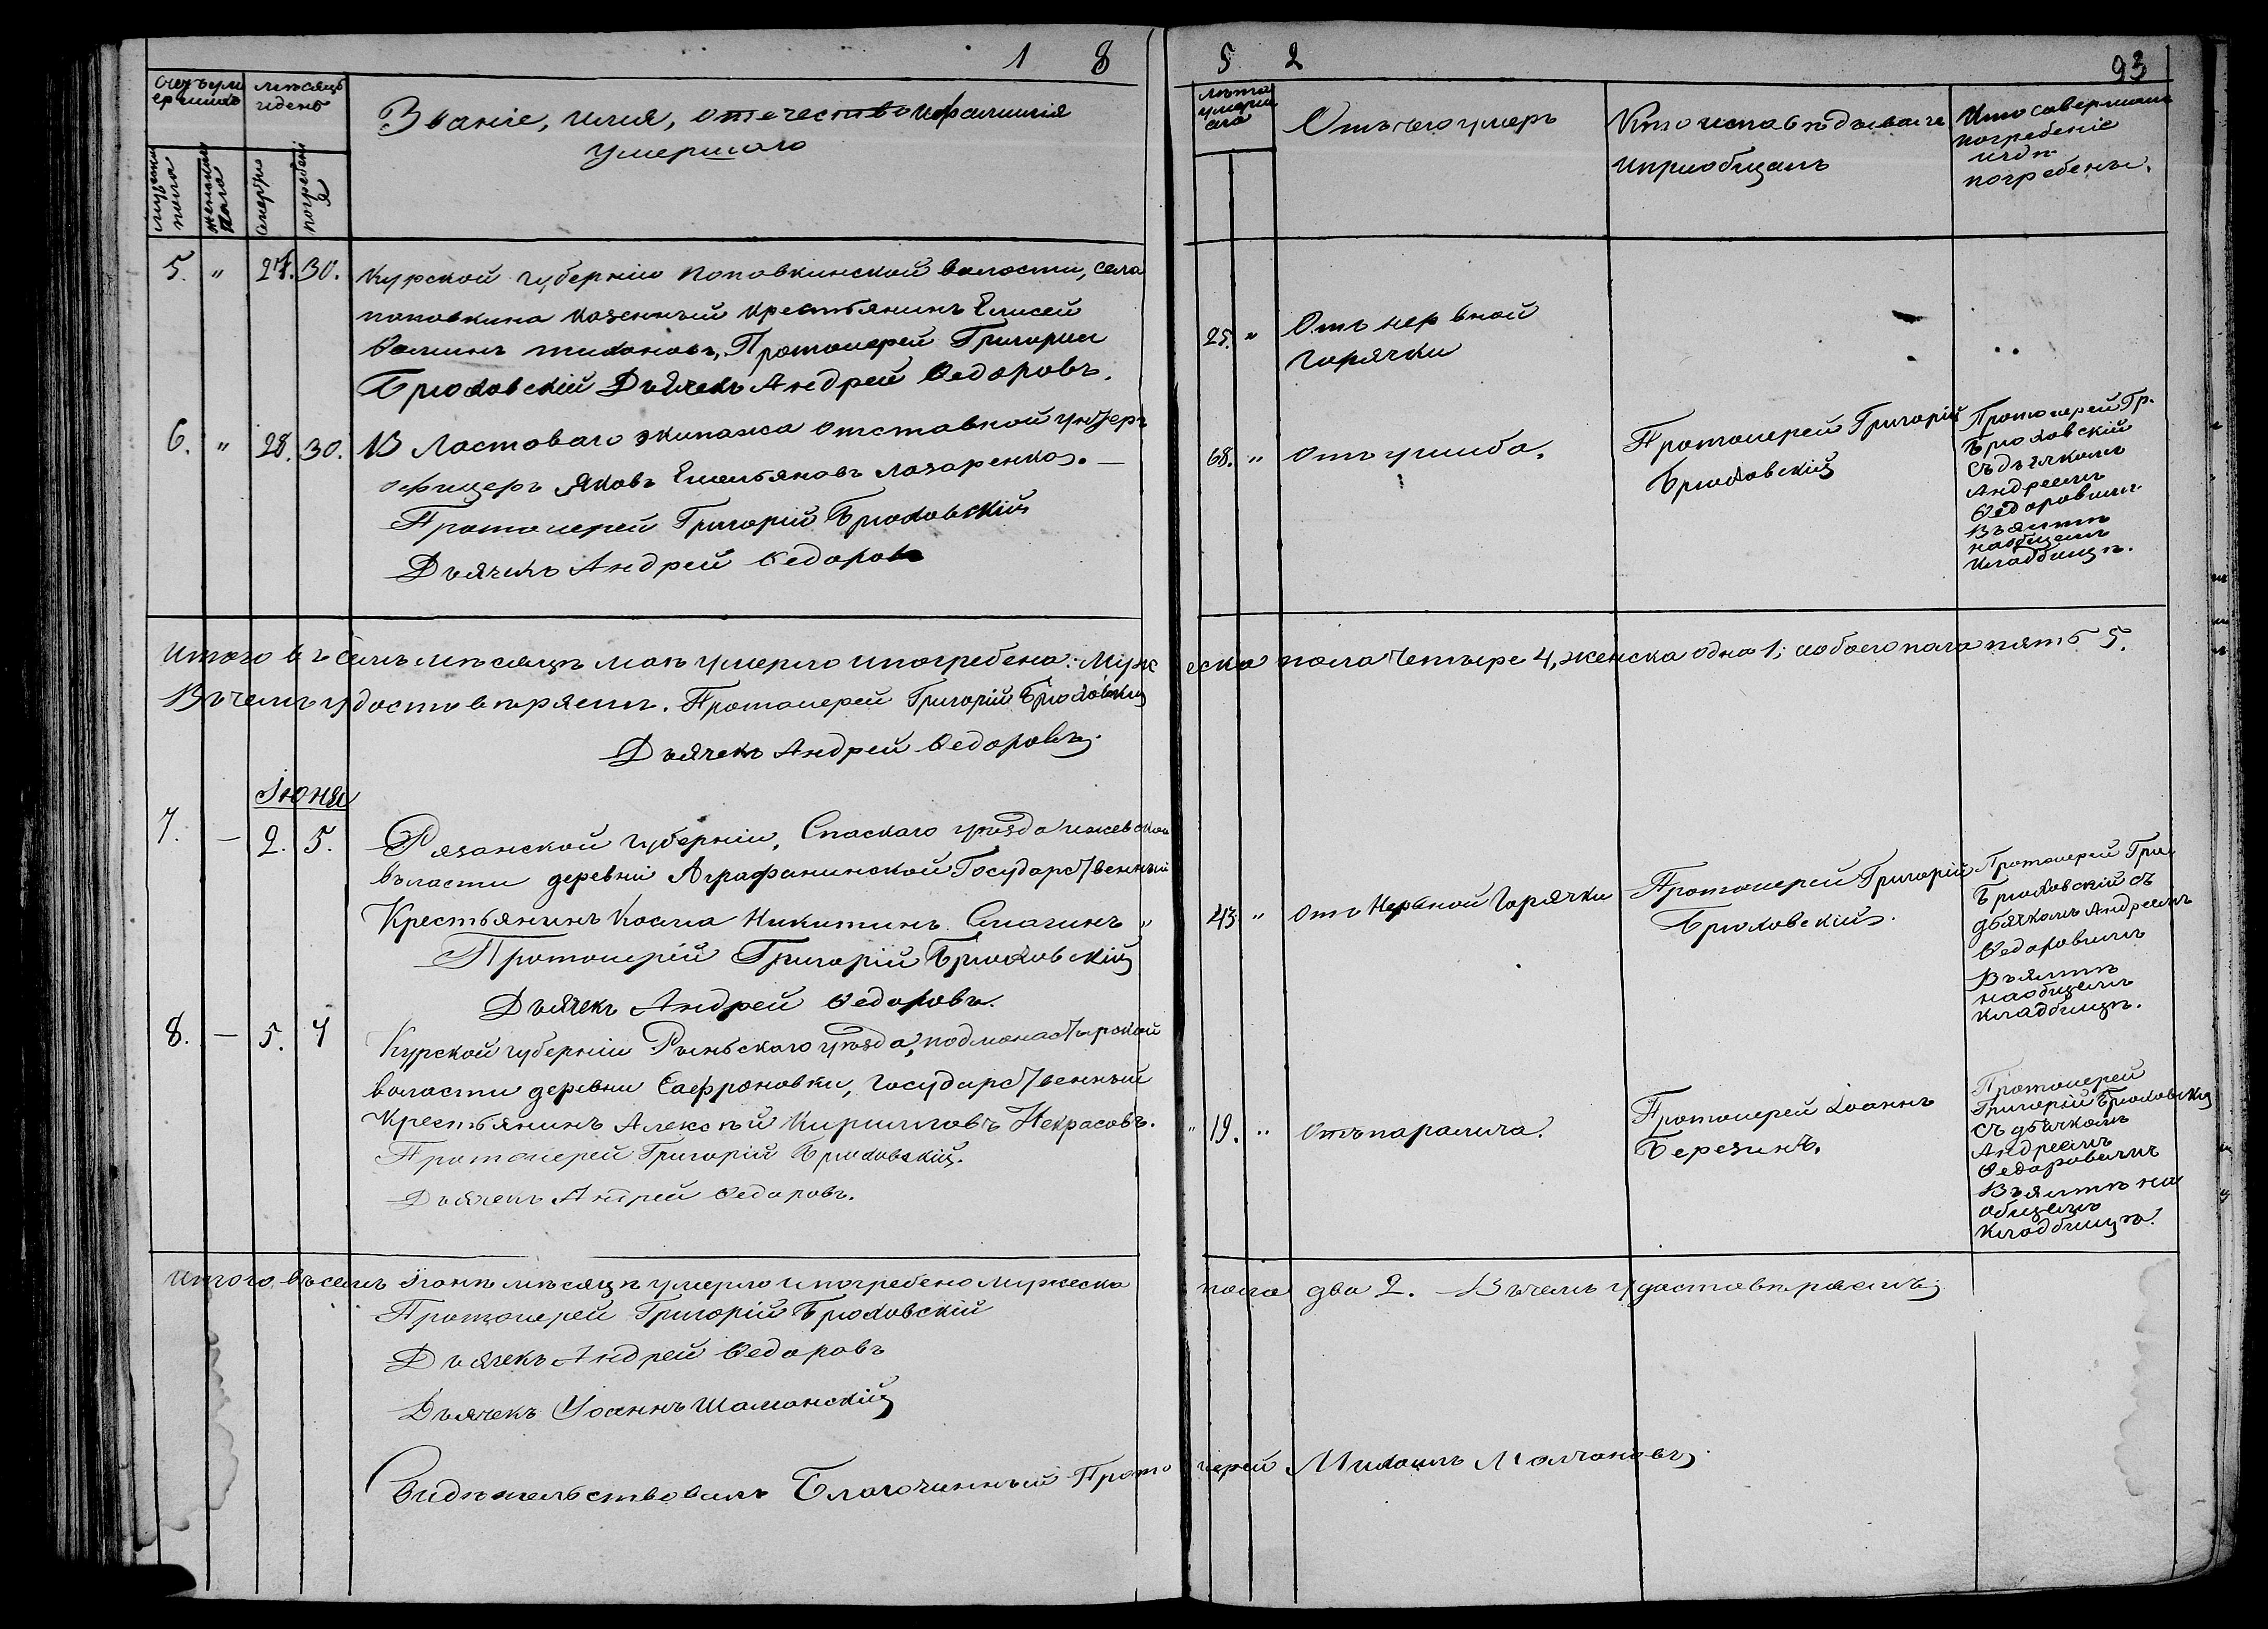 1 8 5 2
93
Счетъ умершихъ
мѣсяцъ и день
мужска пола
женскаго пола
смерти
погребенія
Званіе, имя, отечество и фамилія
умершаго
Лѣта умершаго
Отъ чего умеръ
Кто исповѣдывалъ
и приобщалъ
Кто совершалъ
погребеніе
и гдѣ
погребены.
5. " 27. 30. Курской губерніи Поповкинской волости, села
поповкина казенный крестьянинъ Елисей
Фоминъ тихоновъ, Протоиерей Григорий
Брюховскій Дьячекъ Андрей Ѳедоровъ.
25. " Отъ нервной
горячки
6. " 28. 30. 13 Ластоваго экипажа отставной унтеръ
офицеръ Яковъ Емельяновъ Лазаренко. —
Протоиерей Григорій Брюховскій
Дьячекъ Андрей Ѳедоровъ
68. " отъ ушиба.
Протоиерей Григорій
Брюховскій
Протоиерей Гр.
Брюховскій
съ дьячкомъ
Андреемъ
Ѳедоровымъ
Въ Ялтѣ
на общемъ
кладбищѣ.
Итого въ семъ мѣсяцѣ маѣ умерло и погребено: Мужеска пола четыре 4, женска одна 1; обоего пола пять 5.
Въ чемъ удостовѣряемъ. Протоиерей Григорій Брюховскій
Дьячекъ Андрей Ѳедоровъ.
Іюня
7. — 2. 5. Рязанской губерніи, Спаскаго уѣзда ижевской
въласти деревні Аграфанинской Государственный
Крестьянинъ Косма Никитинъ Смагинъ "
Протоиерій Григорій Брюховскій
Дьячекъ Андрей Ѳедоровъ.
43 " отъ Нервной Горячки
Протоиерей Григорій
Брюховскій.
Протоиерей Гри.
Брюховскій съ
дьячкомъ Андреемъ
Ѳедоровымъ
Въ Ялтѣ
на общемъ
кладбищѣ.
8. — 5. 7 Курской губерніи Рыльскаго уѣзда, подмонастырской
воласти деревни Сафроновки, государственный
Крестьянинъ Алексѣй Кирилловъ Некрасовъ.
Протоиерей Григорій Брюховскій.
Дьячекъ Андрей Ѳедоровъ.
" 19. " Отъ паралича.
Протоиерей Іоаннъ
Березинъ.
Протоиерей
Григорій Брюховскій
съ дьячкомъ
Андреемъ
Ѳедоровымъ
Въ Ялтѣ на
общемъ
Кладбищѣ.
Итого въ семъ Іюнѣ мѣсяцѣ умерло и погребено мужеска пола два 2. Въ чемъ удостовѣряемъ
Протоиерей Григорій Брюховскій
Дьячекъ Андрей Ѳедоровъ
Дьячекъ Іоаннъ Шаманскій
Свидѣтельствовалъ Благочинный Протоиерей Михаилъ Молчановъ.